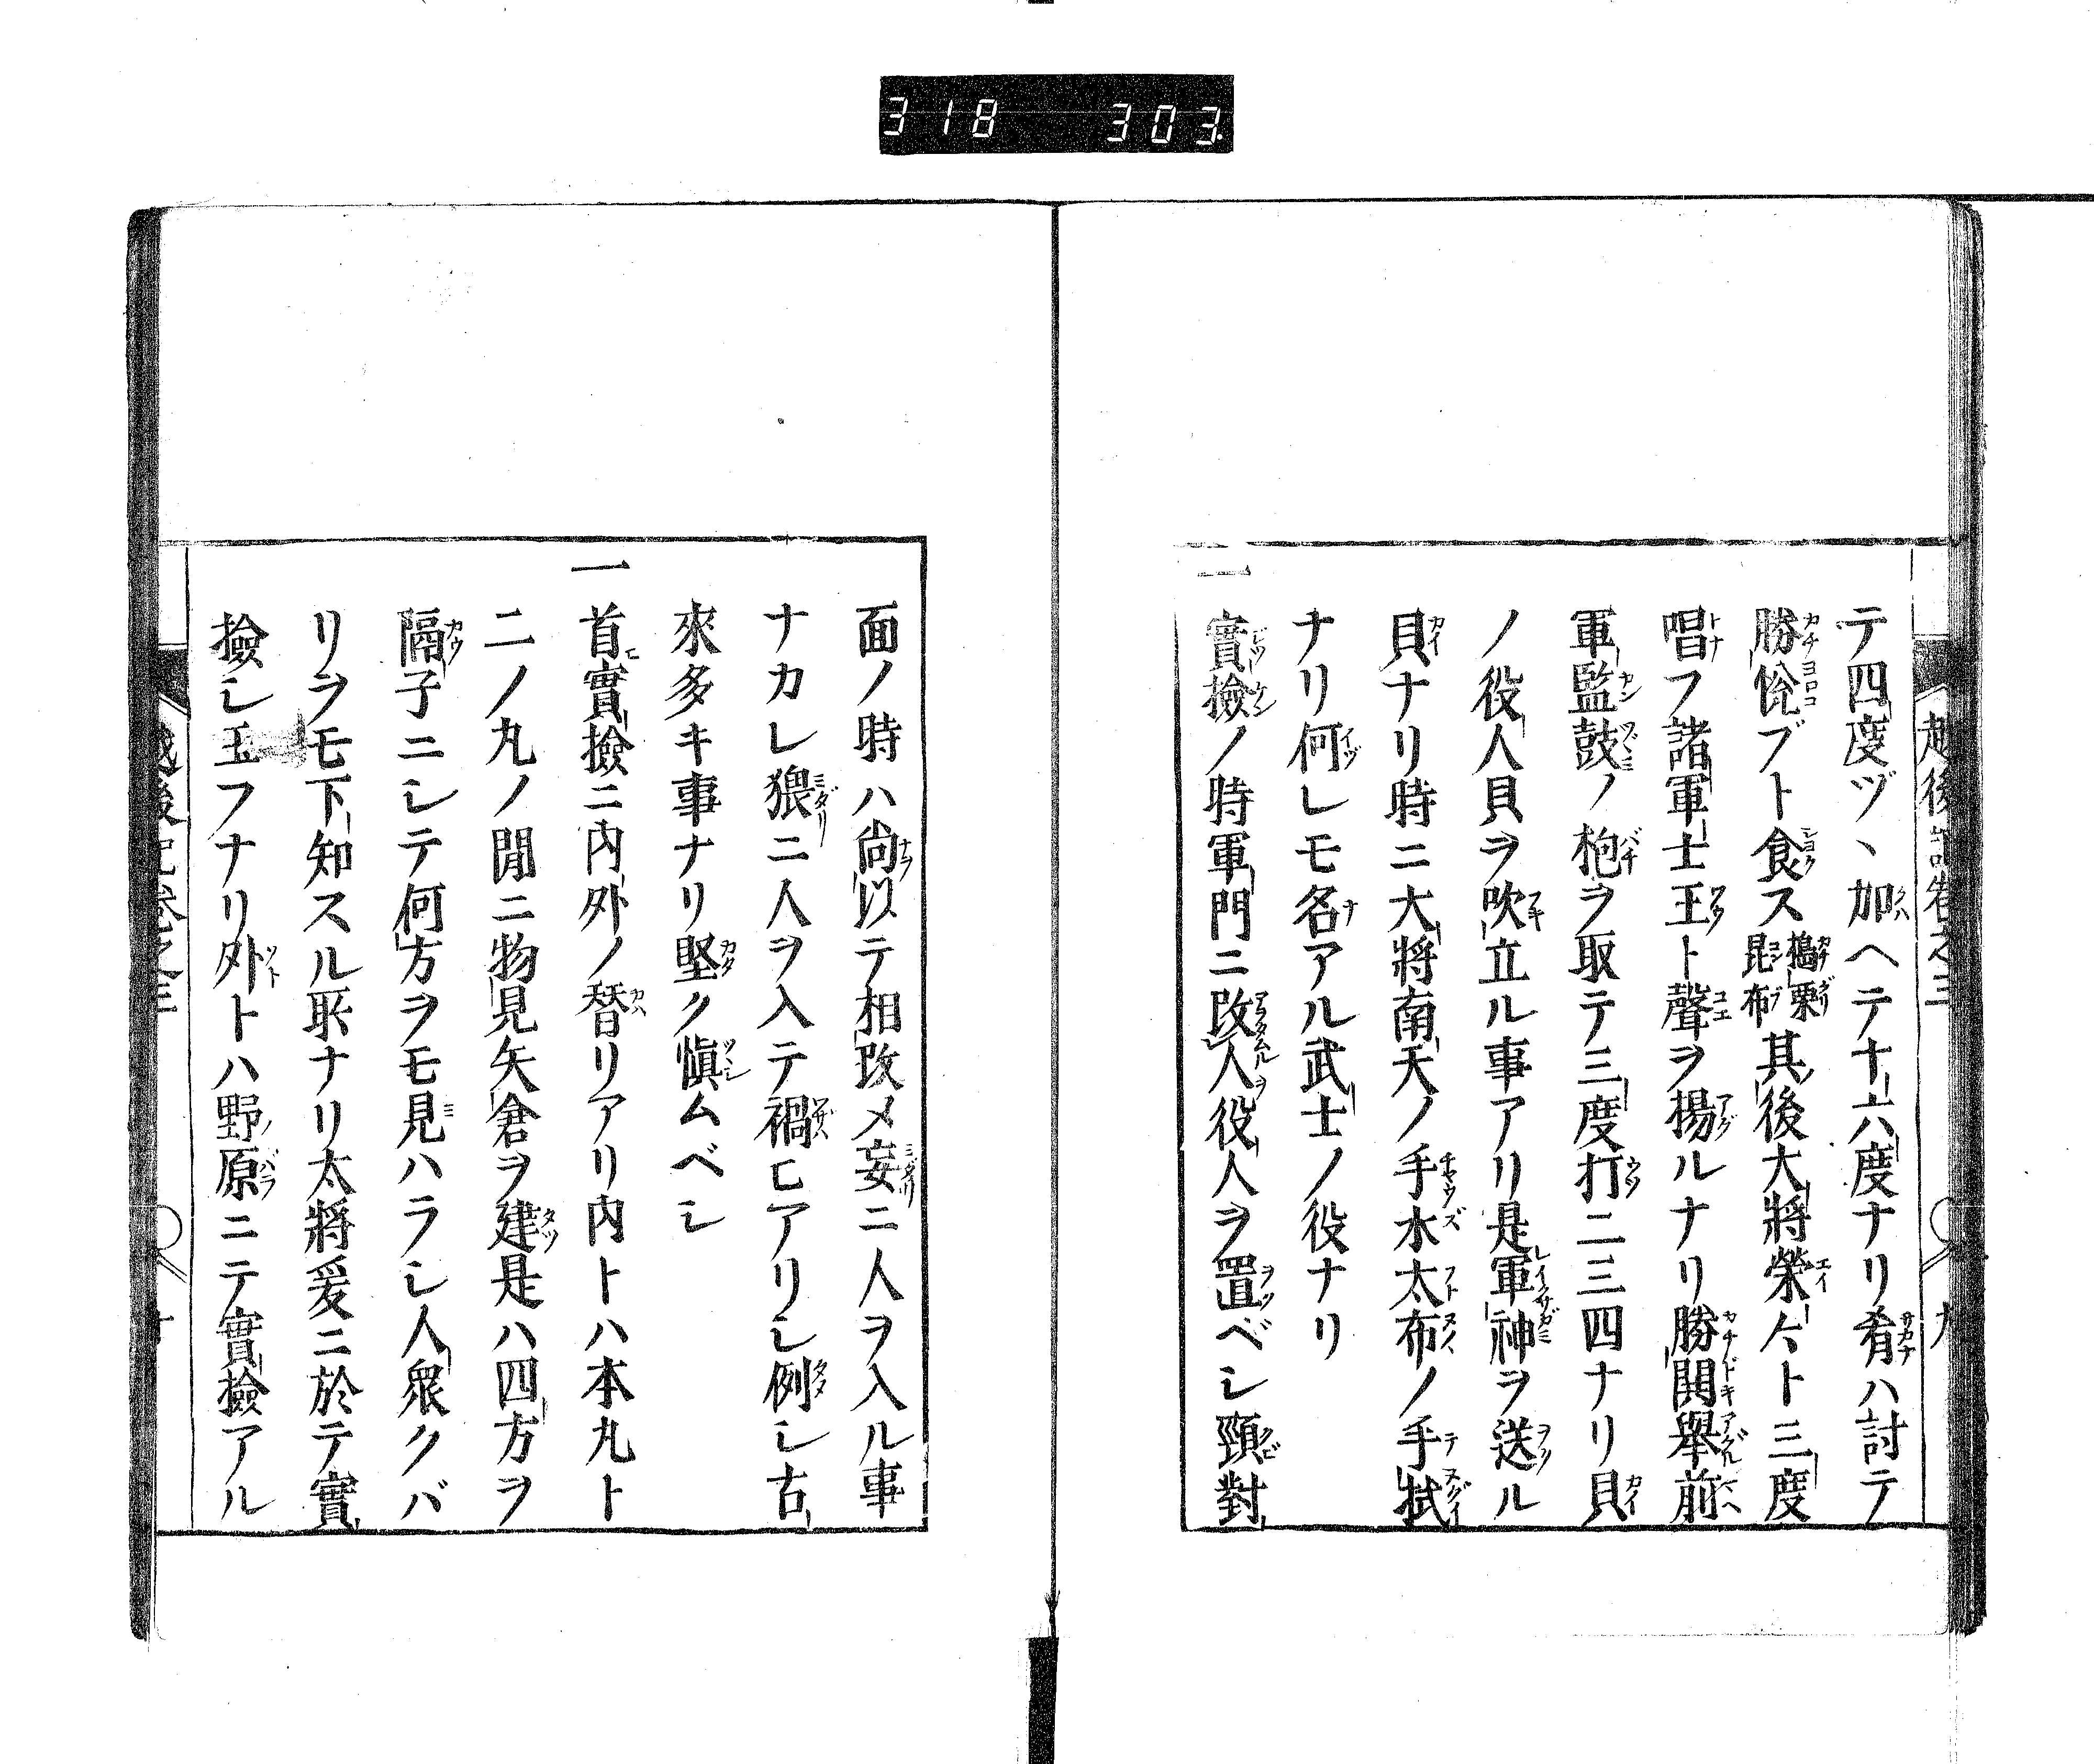 318 303
越後記卷之三 九
テ四度ヅヽ加ヘテ十六度ナリ肴ハ討テ
勝悦ブト食ス搗栗昆布其後大將榮〻ト三度
唱フ諸軍士王ト聲ヲ揚ルナリ勝鬨舉前
軍監鼓ノ枹ヲ取テ三度打二三四ナリ貝
ノ役人貝ヲ吹立ル事アリ是軍神ヲ送ル
貝ナリ時ニ大將南天ノ手水太布ノ手拭
ナリ何レモ名アル武士ノ役ナリ
一實撿ノ時軍門ニ改人役人ヲ置ベシ頸對
面ノ時ハ尚以テ相改メ妄ニ人ヲ入ル事
ナカレ猥ニ人ヲ入テ禍ヒアリシ例シ古
來多キ事ナリ堅ク愼ムベシ
一首實撿ニ内外ノ替リアリ内トハ本丸ト
二ノ丸ノ間ニ物見矢倉ヲ建是ハ四方ヲ
隔子ニシテ何方ヲモ見ハラシ人衆クバ
リヲモ下知スル所ナリ太將爰ニ於テ實
撿シ玉フナリ外トハ野原ニテ實撿アル
越後記卷之三 十